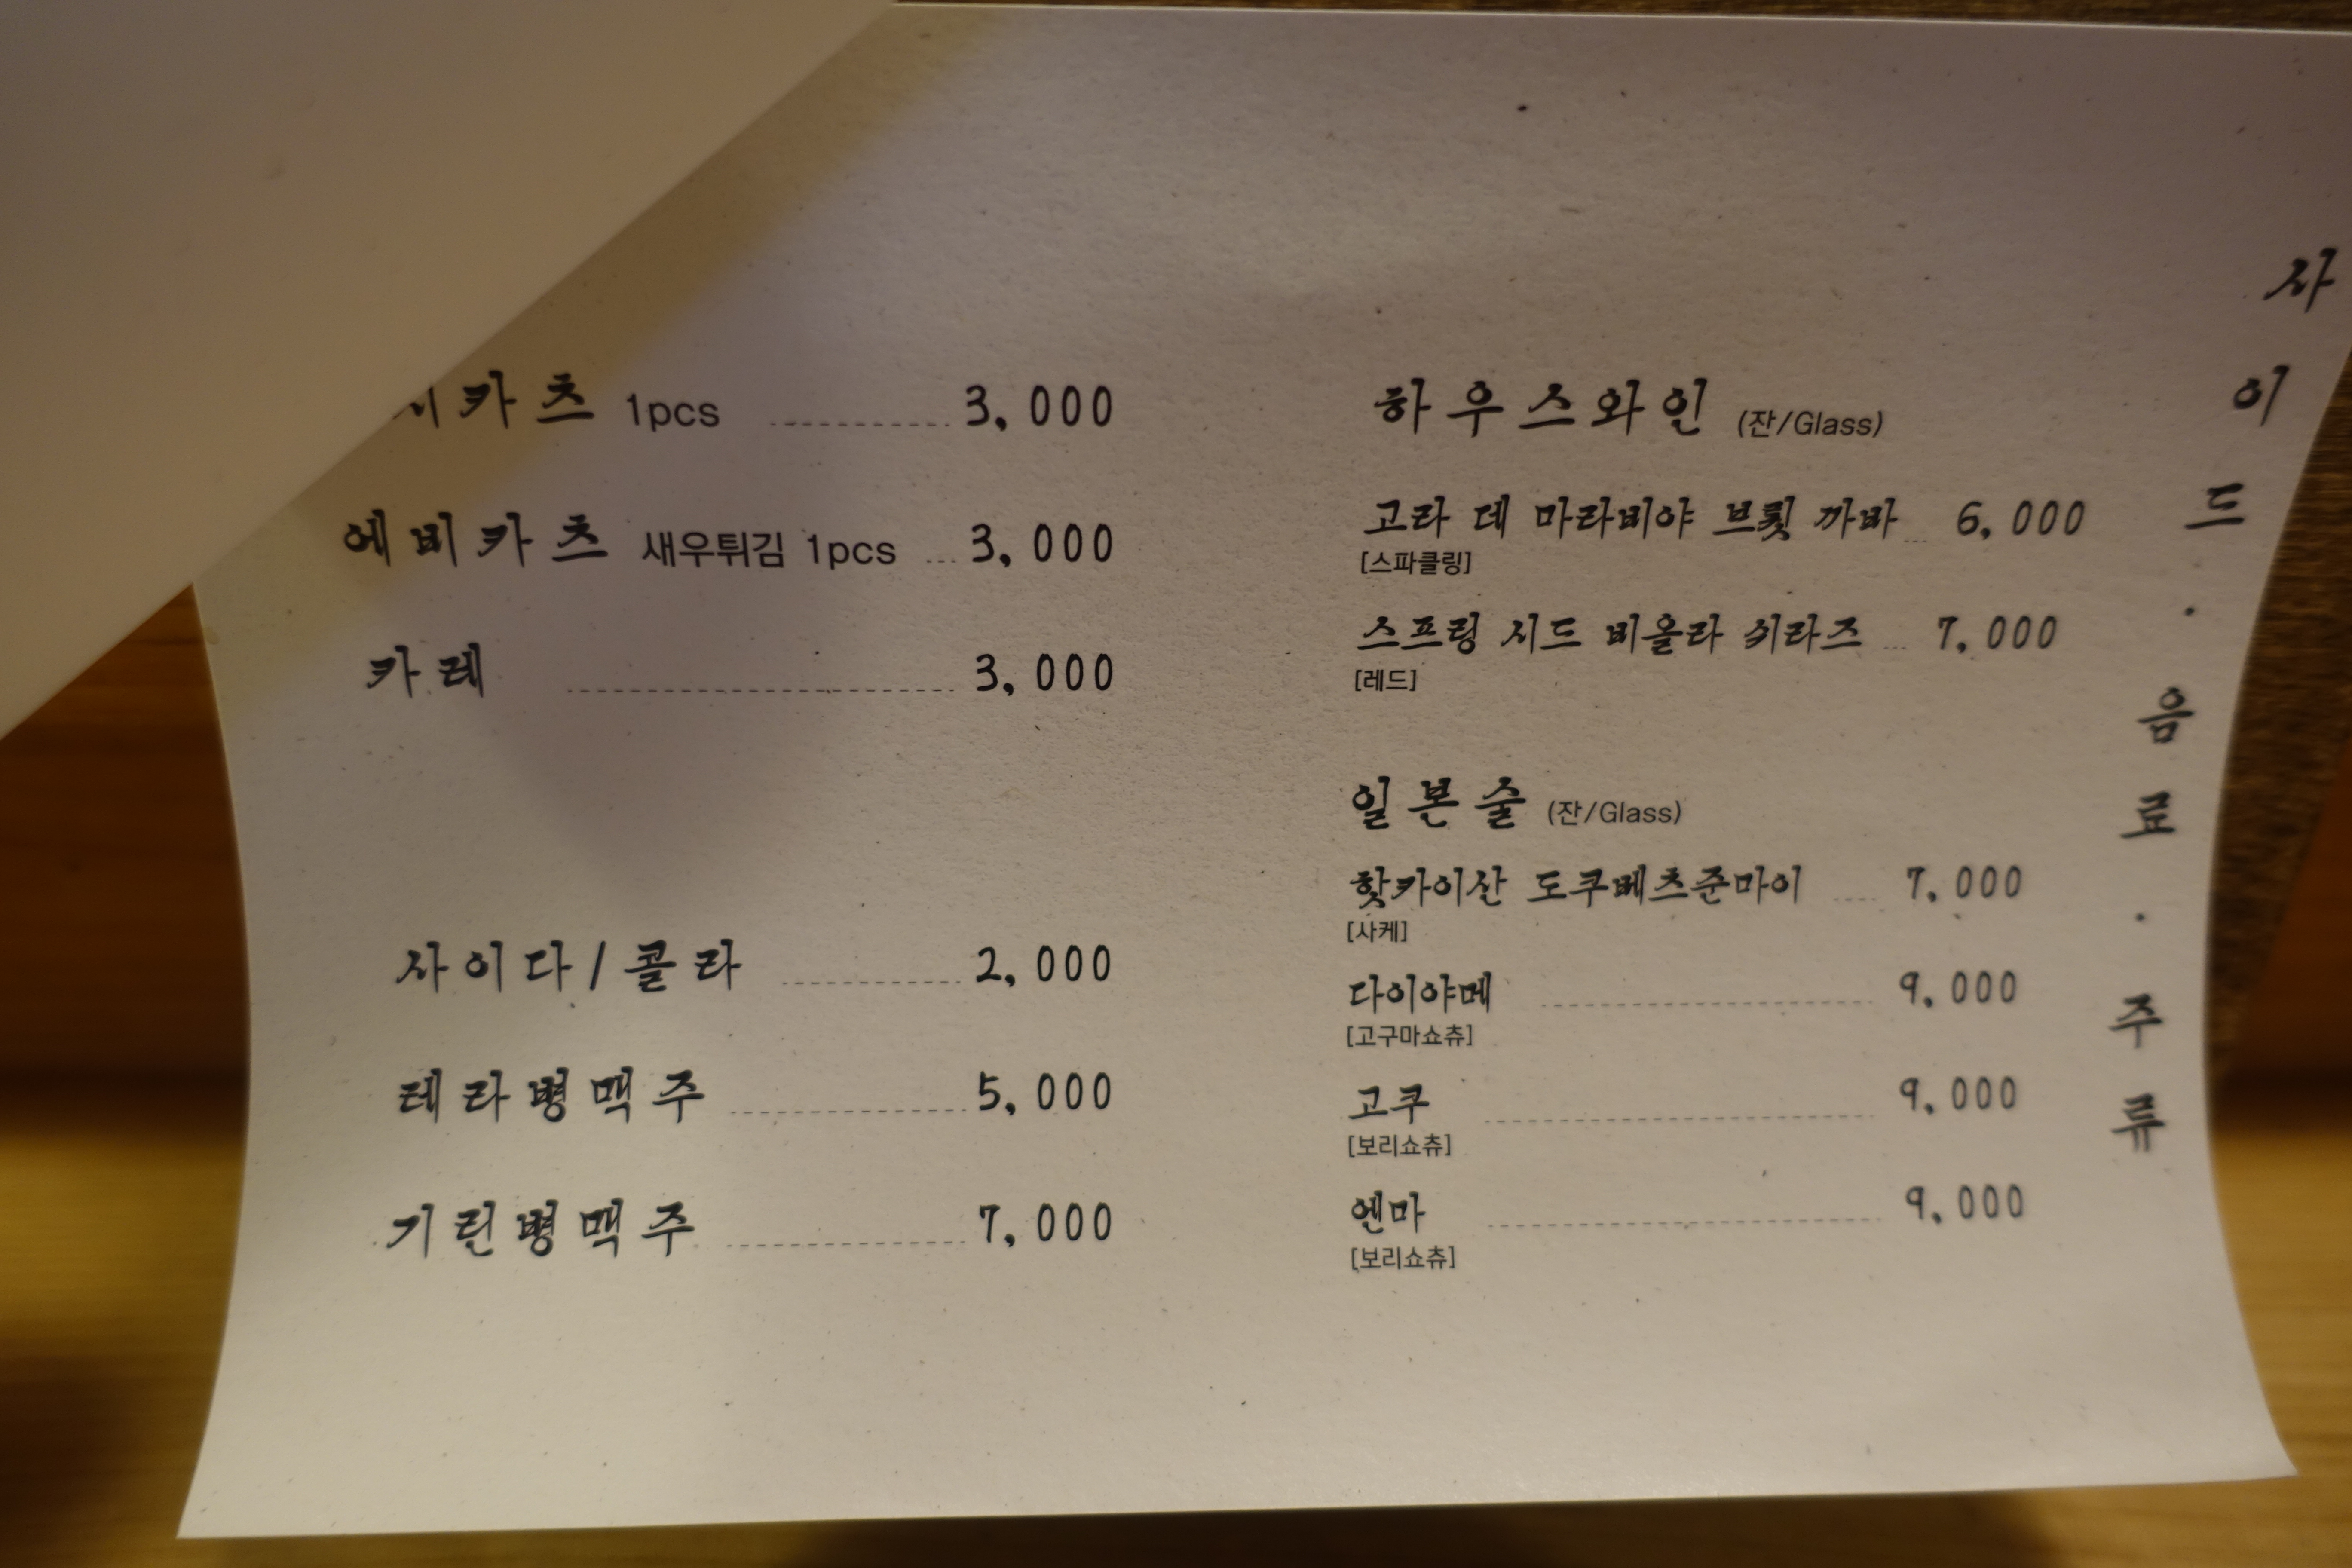 카츠 1pcs 3,000
에비카츠 새우튀김 1pcs 3,000
카레 3,000
사이다/콜라 2,000
테라병맥주 5,000
기린병맥주 7,000
하우스와인 (잔/Glass)
고라 데 마라비야 브륏 까바 6,000
[스파클링]
스프링 시드 비올라 쉬라즈 7,000
[레드]
일본술 (잔/Glass)
핫카이산 도쿠베츠준마이 7,000
[사케]
다이야메 9,000
[고구마쇼츄]
고쿠 9,000
[보리쇼츄]
엔마 9,000
[보리쇼츄]
사이드·음료·주류